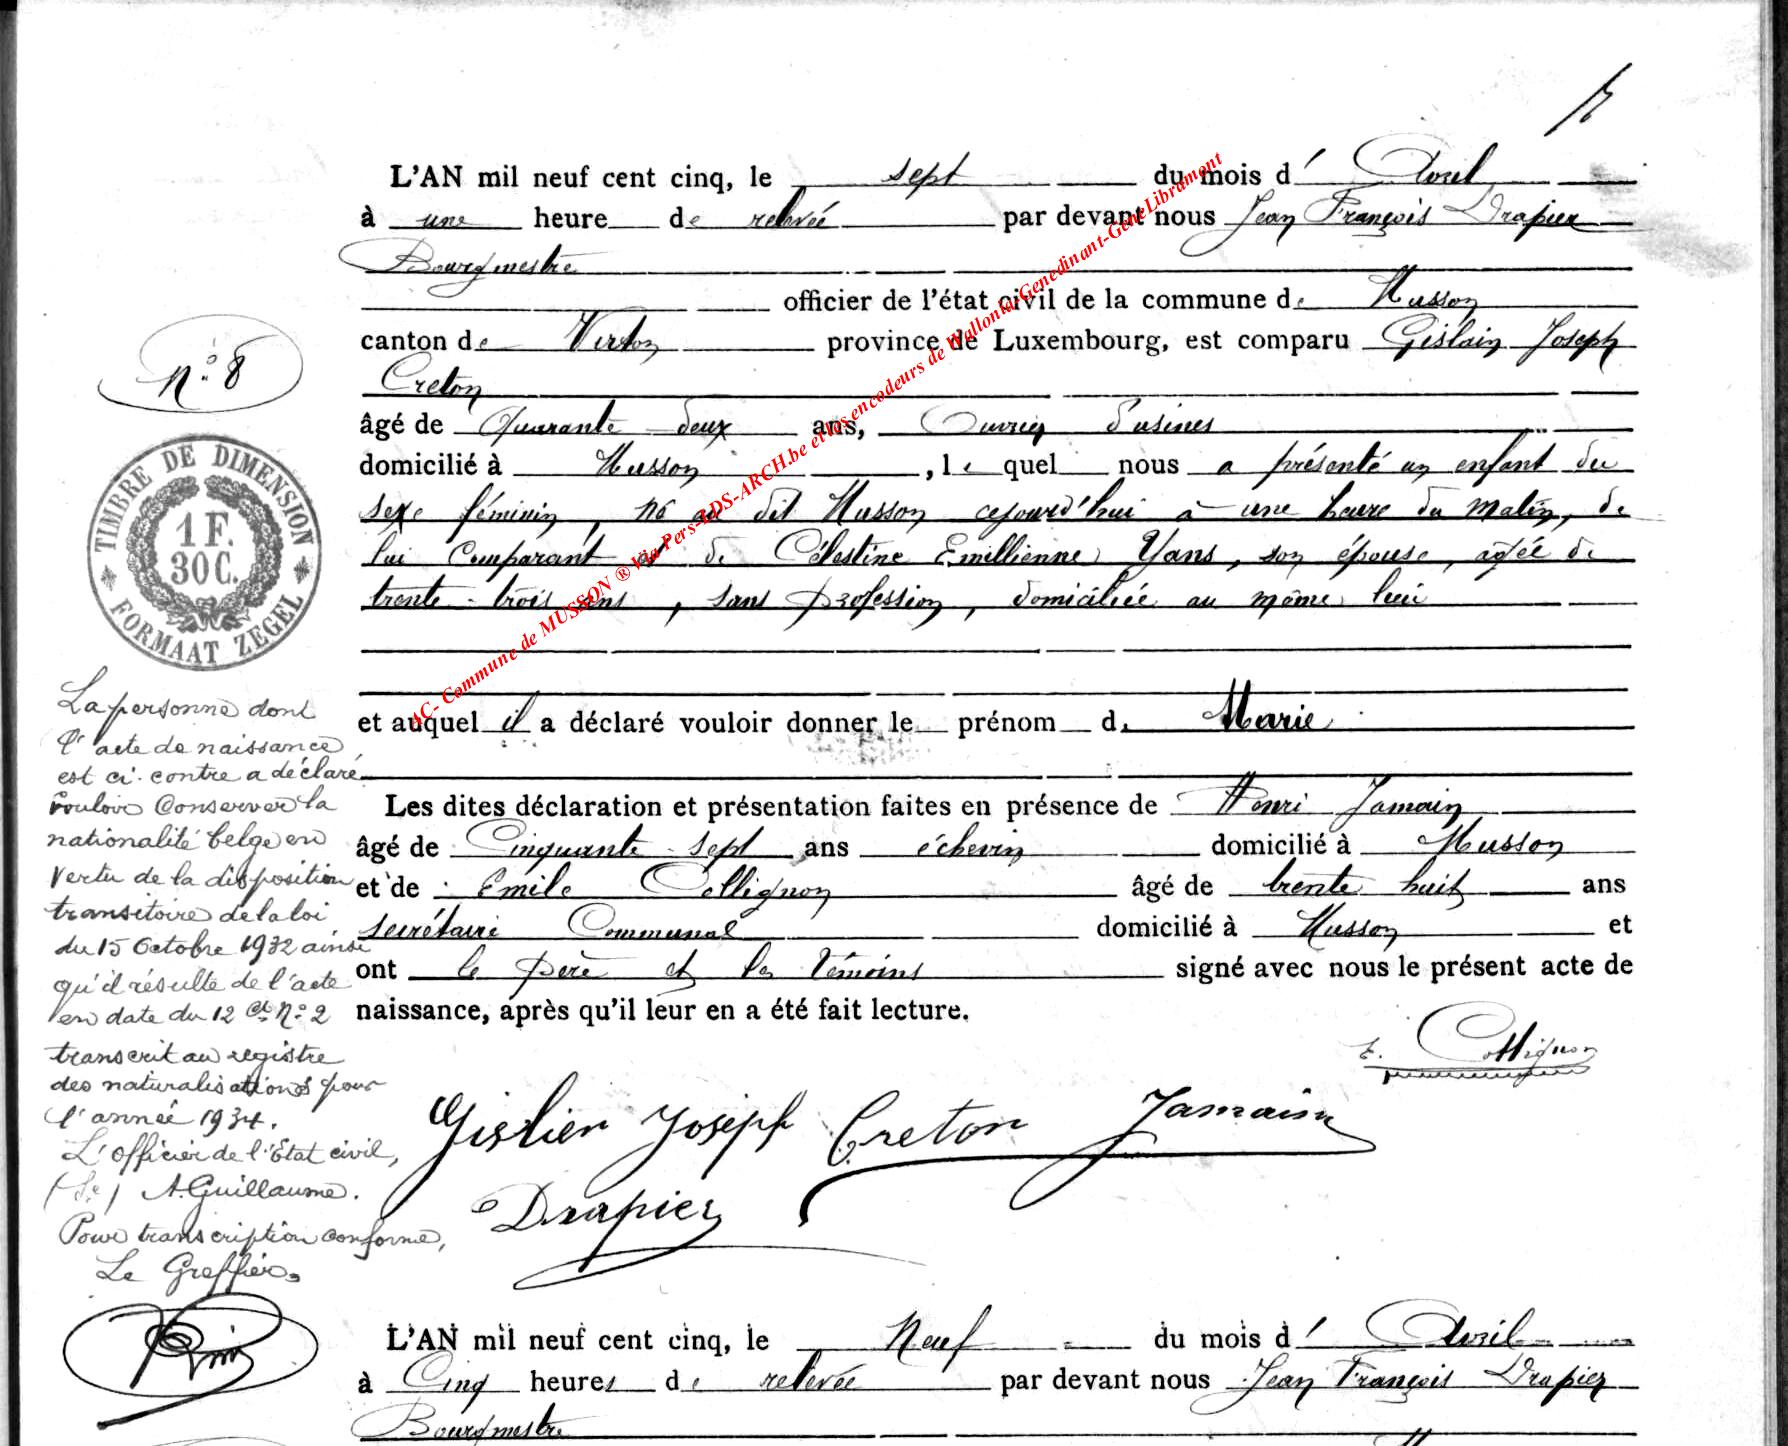 L'AN mil neuf cent cinq, le sept du mois d' Avril
à une heure de relevée par devant nous Jean François Drapier
Bourgmestre
officier de l'état civil de la commune de Musson
canton de Virton province de Luxembourg, est comparu Gislain Joseph
Creton
âgé de Quarante deux ans, Ouvrier d'usines
domicilié à Musson, lequel nous a présenté un enfant du
sexe féminin, né au dit Musson cejourd'hui à une heure du matin, de
lui Comparant et de Célestine Emillienne Yans, son épouse, agée de
trente-trois ans, sans profession, domiciliée au même lieu
et auquel il a déclaré vouloir donner le prénom de Marie
Les dites déclaration et présentation faites en présence de Henri Jamain
âgé de Cinquante-sept ans échevin domicilié à Musson
et de Emile Collignon âgé de trente huit ans
secrétaire Communal domicilié à Musson et
ont le père et les témoins signé avec nous le présent acte de
naissance, après qu'il leur en a été fait lecture.
E. Collignon
Gislien Joseph Creton Jamain
Drapier
N° 8
TIMBRE DE DIMENSION
1 F.
30 C.
FORMAAT ZEGEL
La personne dont
l'acte de naissance
est ci-contre a déclaré
vouloir conserver la
nationalité belge en
vertu de la disposition
transitoire de la loi
du 15 Octobre 1932 ainsi
qu'il résulte de l'acte
en date du 12 Ct N° 2
transcrit au registre
des naturalisations pour
l'année 1934.
L'officier de l'Etat civil,
(Sé) A. Guillaume.
Pour transcription conforme,
Le Greffier,
AC- Commune de MUSSON ® Via Pers-BDS-ARCH.be et les encodeurs de Wallonia-Genedinant-GeneLibramont
L'AN mil neuf cent cinq, le Neuf du mois d' Avril
à Cinq heures de relevée par devant nous Jean François Drapier
Bourgmestre